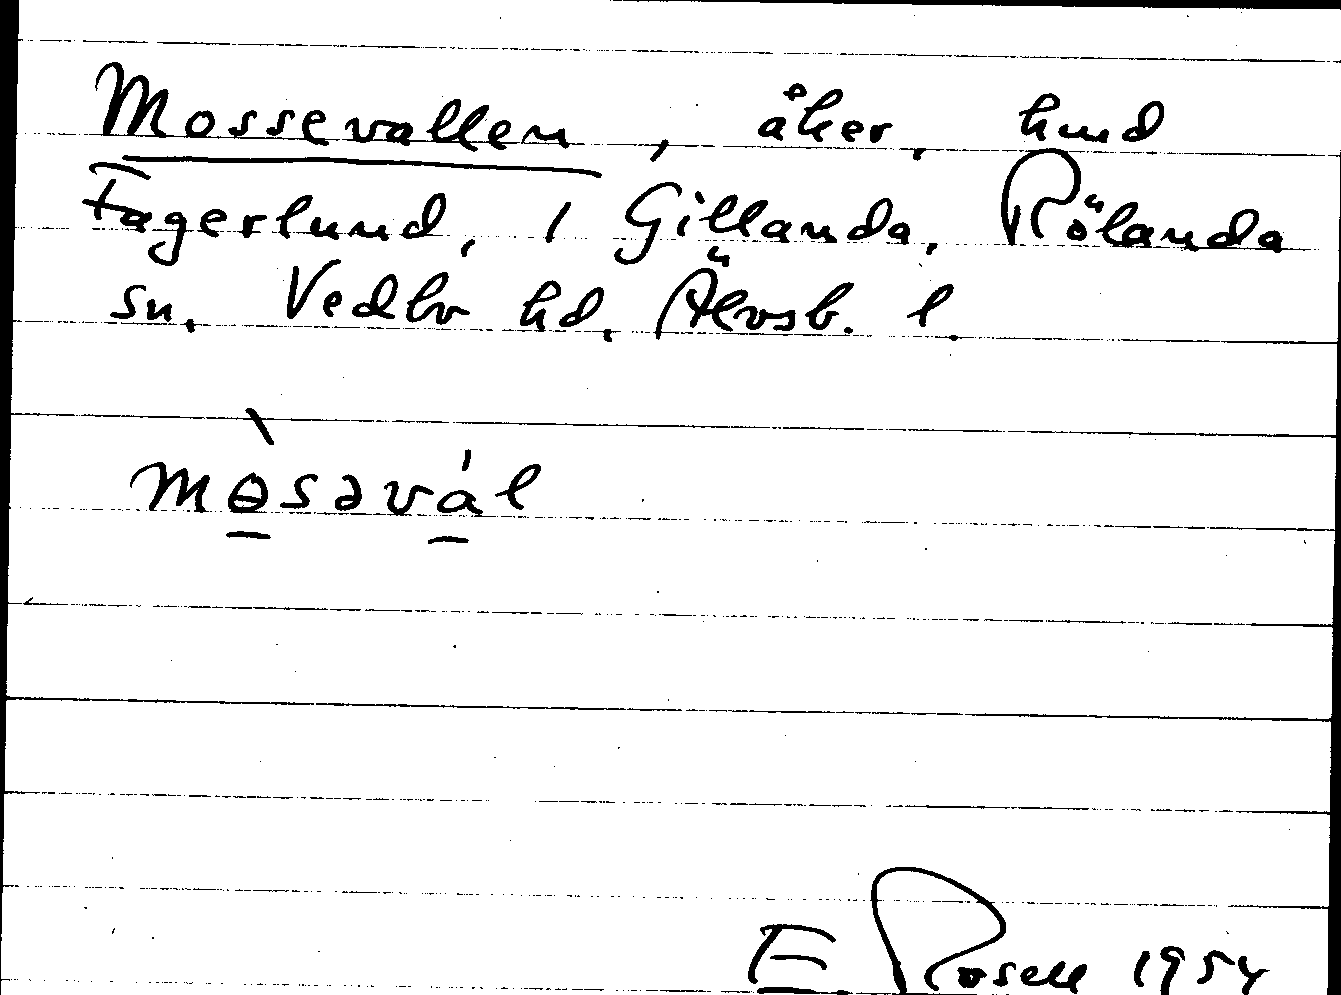 Mossevallen, åker, hmd
Fagerlund, 1 Gillanda, Rölanda
sn. Vedbo hd. Älvsb. l.
mòsəvál
E. Rosell 1954